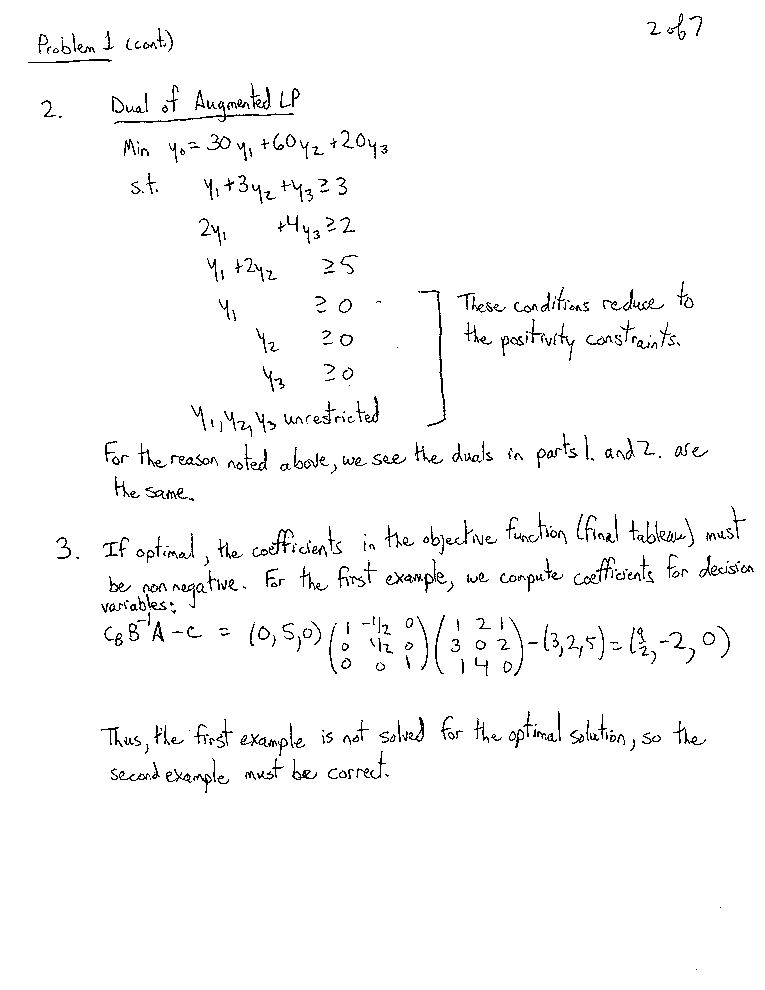 2 of 7
Problem 1 (cont.)
2. Dual of Augmented LP
Min y₀ = 30y₁ + 60y₂ + 20y₃
s.t. y₁ + 3y₂ + y₃ ≥ 3
2y₁ + 4y₃ ≥ 2
y₁ + 2y₂ ≥ 5
y₁ ≥ 0
y₂ ≥ 0
y₃ ≥ 0
y₁, y₂, y₃ unrestricted
These conditions reduce to
the positivity constraints.
For the reason noted above, we see the duals in parts 1. and 2. are
the same.
3. If optimal, the coefficients in the objective function (final tableau) must
be nonnegative. For the first example, we compute coefficients for decision
variables:
C_B B⁻¹A - C = (0, 5, 0) (1 -1/2 0; 0 1/2 0; 0 0 1) (1 2 1; 3 0 2; 1 4 0) - (3, 2, 5) = (9/2, -2, 0)
Thus, the first example is not solved for the optimal solution, so the
second example must be correct.